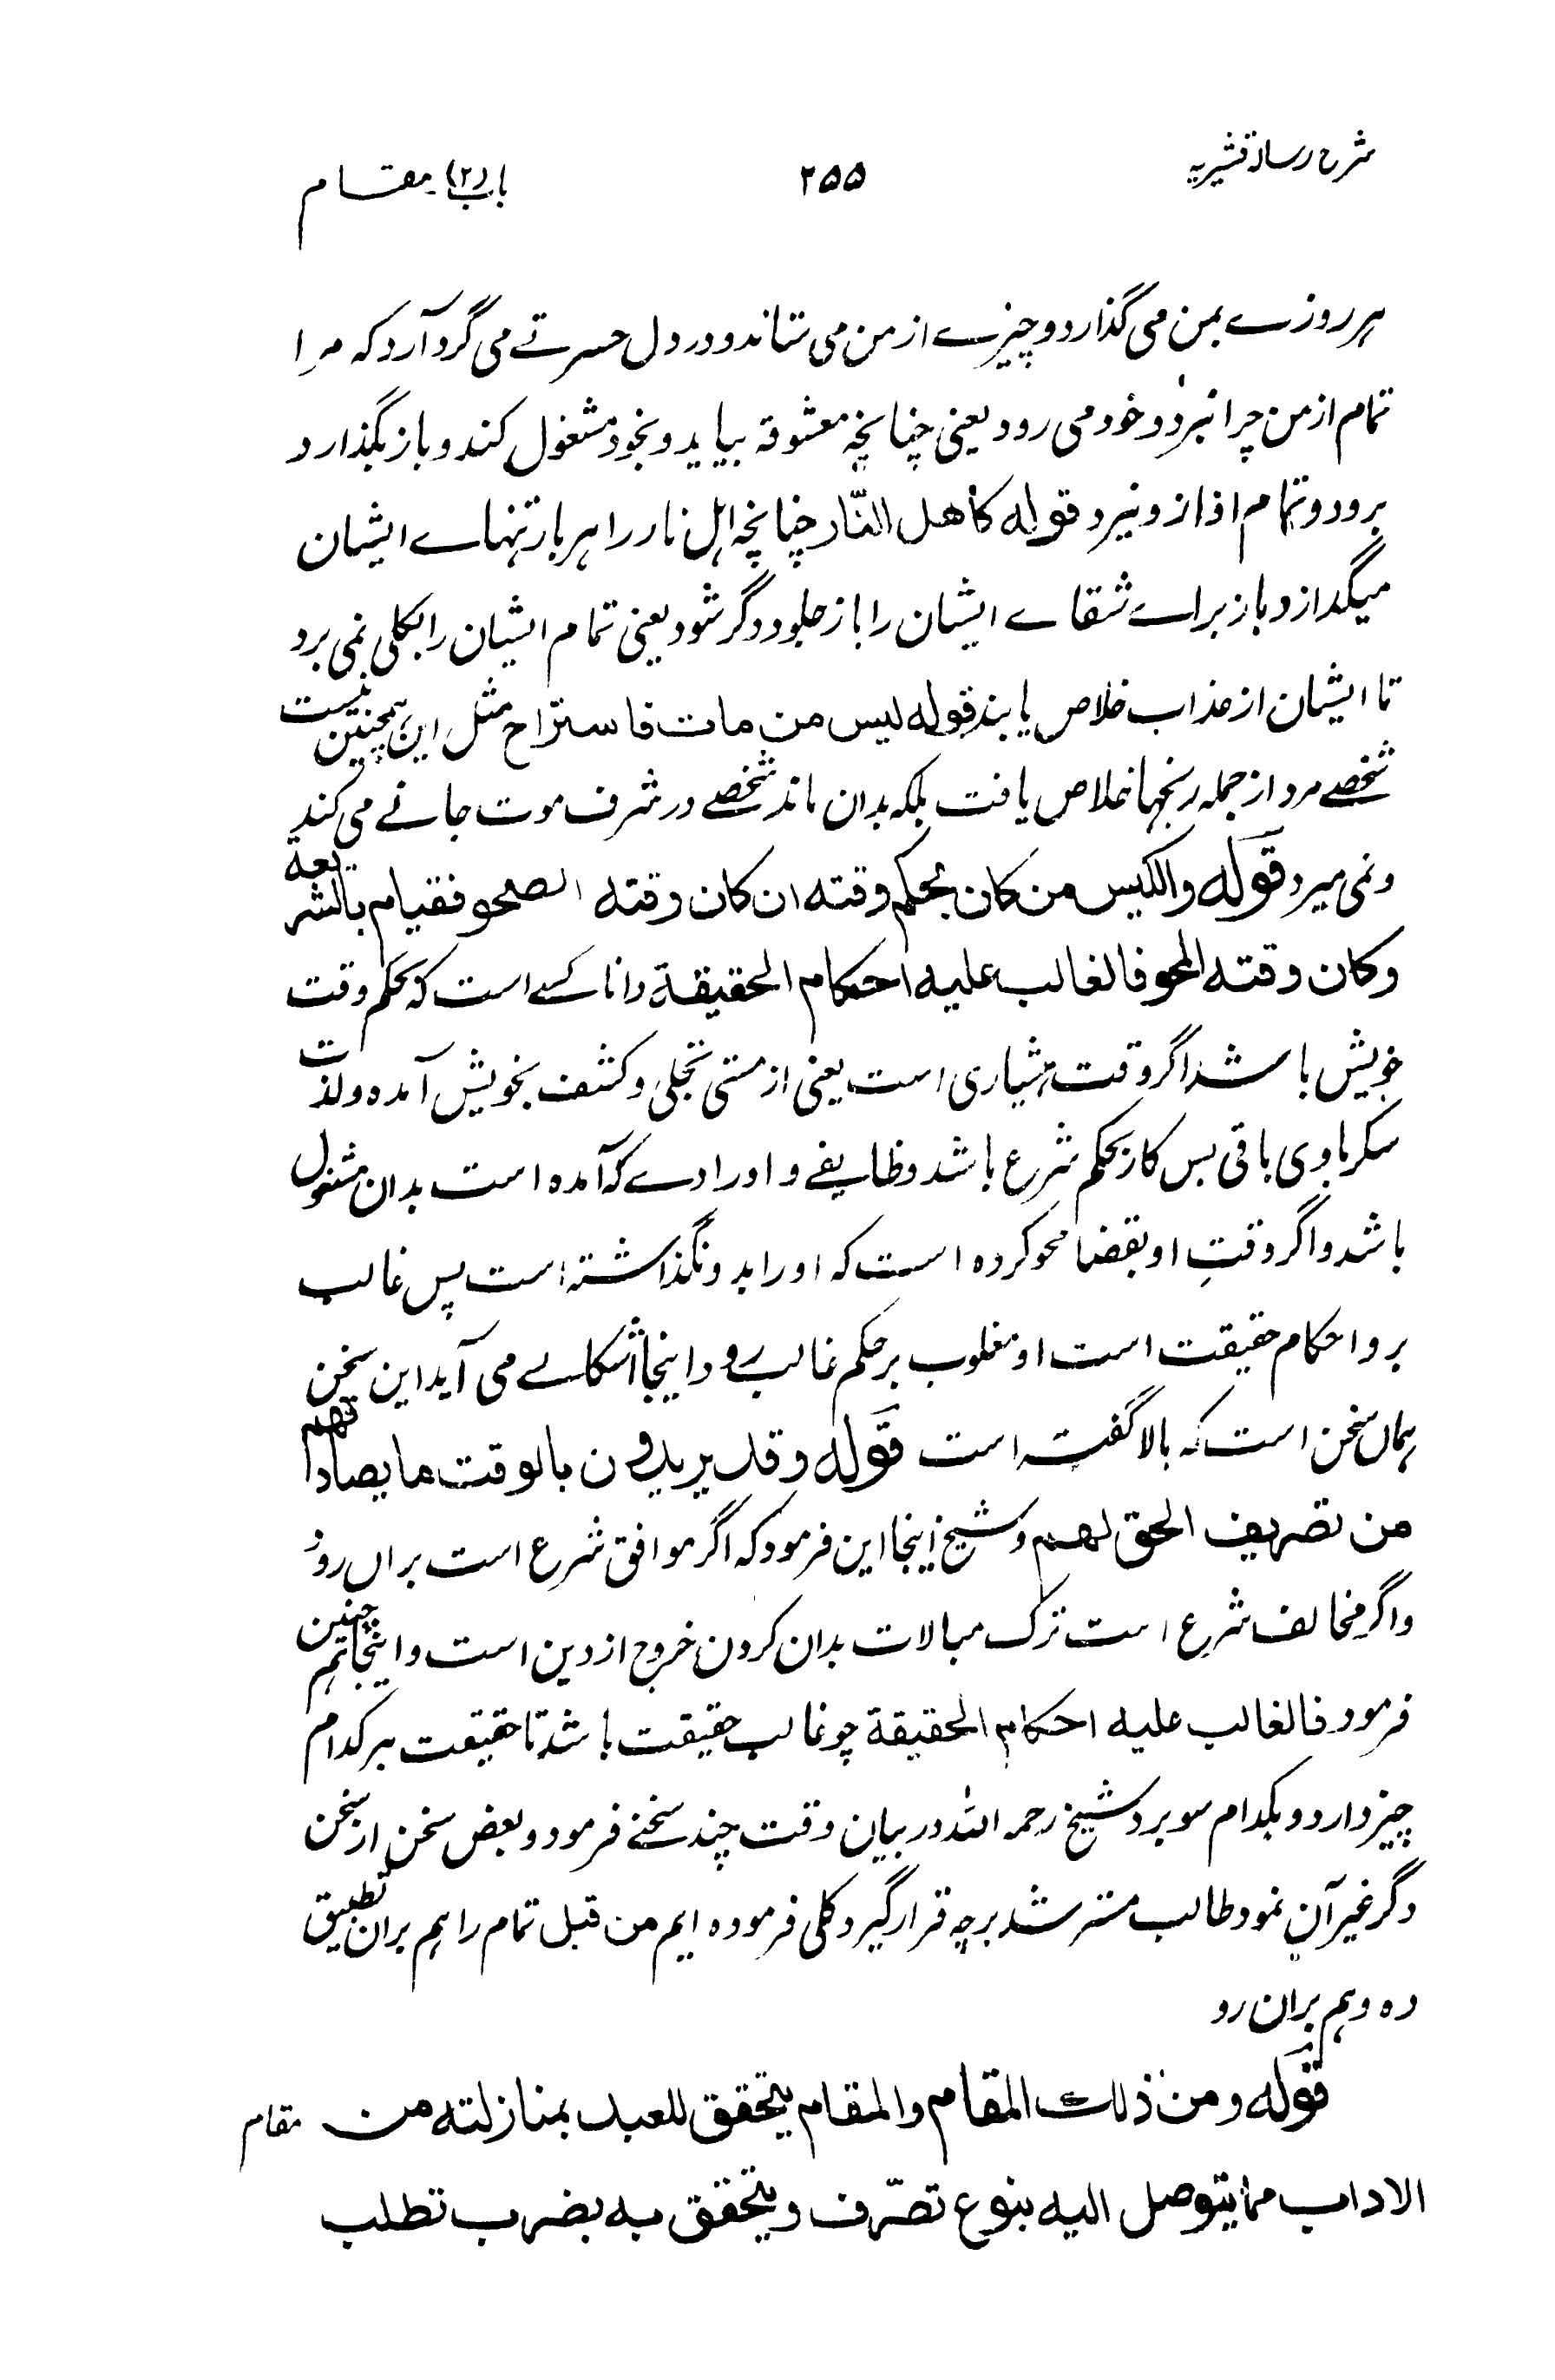 شرح رسالۂ قشیریہ
۲۵۵
باب (۲) مقام
ہر روزے بمن می گذارد و چیزے از من می ستاند و در دل حسرتے می گرد آرد کہ مرا
تمام از من چرا نبرد و خود می رود یعنی چنانچہ معشوقہ بیاید و بخود مشغول کند و باز بگذارد
برود و تمام او از و نبرد قوله کاهل النّار چنانچہ اہل نار را ہر بار تنہاے ایشان
میگدازد و باز براے شقاے ایشان را باز جلود دگر شود یعنی تمام ایشان را بکلی نمی برد
تا ایشان از عذاب خلاص یابند قوله لیس من مات فاستراح مثل این ہمچنین نیست
شخصے مرد از جملہ رنجہا خلاص یافت بلکہ بدان ماند شخصے در شرف موت جانے می کند
و نمی میرد قوله والکیس من کان بحکم وقته ان کان وقته الصحو فقیام بالشریعة
وکان وقته المحو فالغالب علیه احکام الحقیقة دانا کسے است کہ بحکم وقت
خویش باشد اگر وقت ہشیاری است یعنی از مستی تجلی و کشف بخویش آمدہ ولذت
سکر باوی باقی بس کار بحکم شرع باشد وظایفے و اورادے کہ آمدہ است بدان مشغول
باشد و اگر وقتِ او بقضا محو کردہ است کہ او را بدو نگذاشتہ است پس غالب
برو احکام حقیقت است او مغلوب بر حکم غالب رود اینجا اشکالے می آید این سخن
ہماں سخن است کہ بالا گفتہ است قوله وقد یریدون بالوقت ما یصادفهم
من تصریف الحق لهم و شیخ اینجا این فرمود کہ اگر موافق شرع است براں رود
و اگر مخالف شرع است ترک مبالات بدان کردن خروج از دین است و اینجا ہم چنین
فرمود فالغالب علیه احکام الحقیقة چو غالب حقیقت باشد تا حقیقت بر کدام
چیز دارد و بکدام سو برد شیخ رحمہ اللہ در بیان وقت چند سخنے فرمود و بعض سخن از سخن
دگر غیر آن نمود طالب مسترشد برچہ قرار گیرد کلی فرمودہ ایم من قبل تمام را ہم بران تطبیق
دہ و ہم بران رو
قوله ومن ذلك المقام والمقام یتحقق للعبد بمنازلته من
مقام
الاداب مما یتوصل الیه بنوع تصرّف ویتحقق به بضرب تطلب